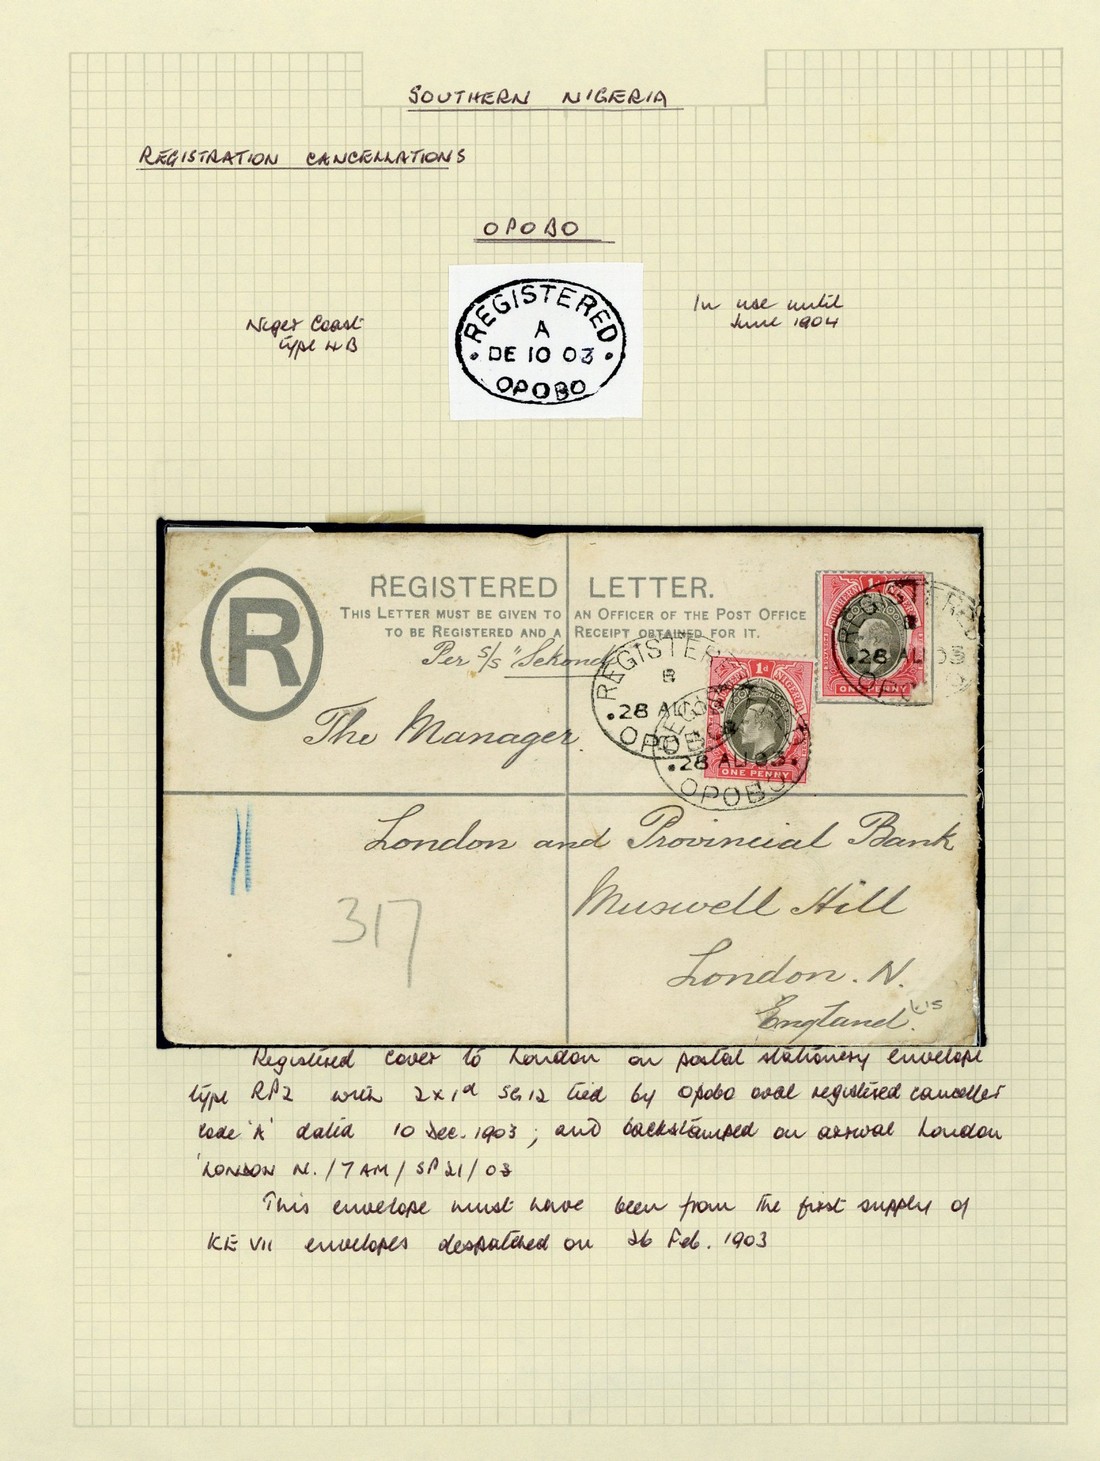 SOUTHERN NIGERIA
REGISTRATION CANCELLATIONS
OPOBO
Niger Coast
type 4B
REGISTERED
A
DE 10 03
OPOBO
In use until
June 1904
R
REGISTERED LETTER.
THIS LETTER MUST BE GIVEN TO AN OFFICER OF THE POST OFFICE
TO BE REGISTERED AND A RECEIPT OBTAINED FOR IT.
Per S/S "Sekondi
REGISTERED
28 AU 03
OPOBO
REGISTERED
B
28 AU
OPOBO
REGISTERED
28 AU 03
OPOBO
1d
SOUTHERN NIGERIA
ONE PENNY
1d
SOUTHERN NIGERIA
ONE PENNY
The Manager.
London and Provincial Bank
Muswell Hill
London. N.
England.
317
Registered cover to London on postal stationery envelope
type RP2 with 2x1d SG12 tied by Opobo oval registered canceller
code 'A' dated 10 Dec. 1903; and backstamped on arrival London
'LONDON N./7AM/SP21/03
This envelope must have been from the first supply of
KE VII envelopes despatched on 26 Feb. 1903